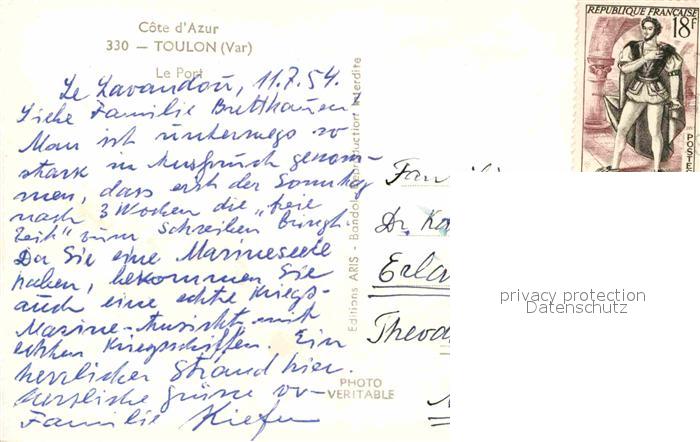 Côte d'Azur
330 — TOULON (Var)
Le Port
Le Lavandou, 11.7.54.
Liebe Familie Bretthauer
Man ist unterwegs so
stark in Anspruch genom-
men, dass erst der Sonntag
nach 3 Wochen die „freie
Zeit" zum Schreiben bringt.
Da Sie eine Marineseele
haben, bekommen Sie
auch eine echte Kriegs-
Marine-Ansicht mit
echten Kriegsschiffen. Ein
herrlicher Strand hier.
Herzliche Grüsse v.
Familie Kiefer
Editions ARIS - Bandol Reproduction Interdite
PHOTO
VERITABLE
RÉPUBLIQUE FRANÇAISE
18F
POSTES
Fam
Dr. Ka
Erla
Theod
privacy protection
Datenschutz